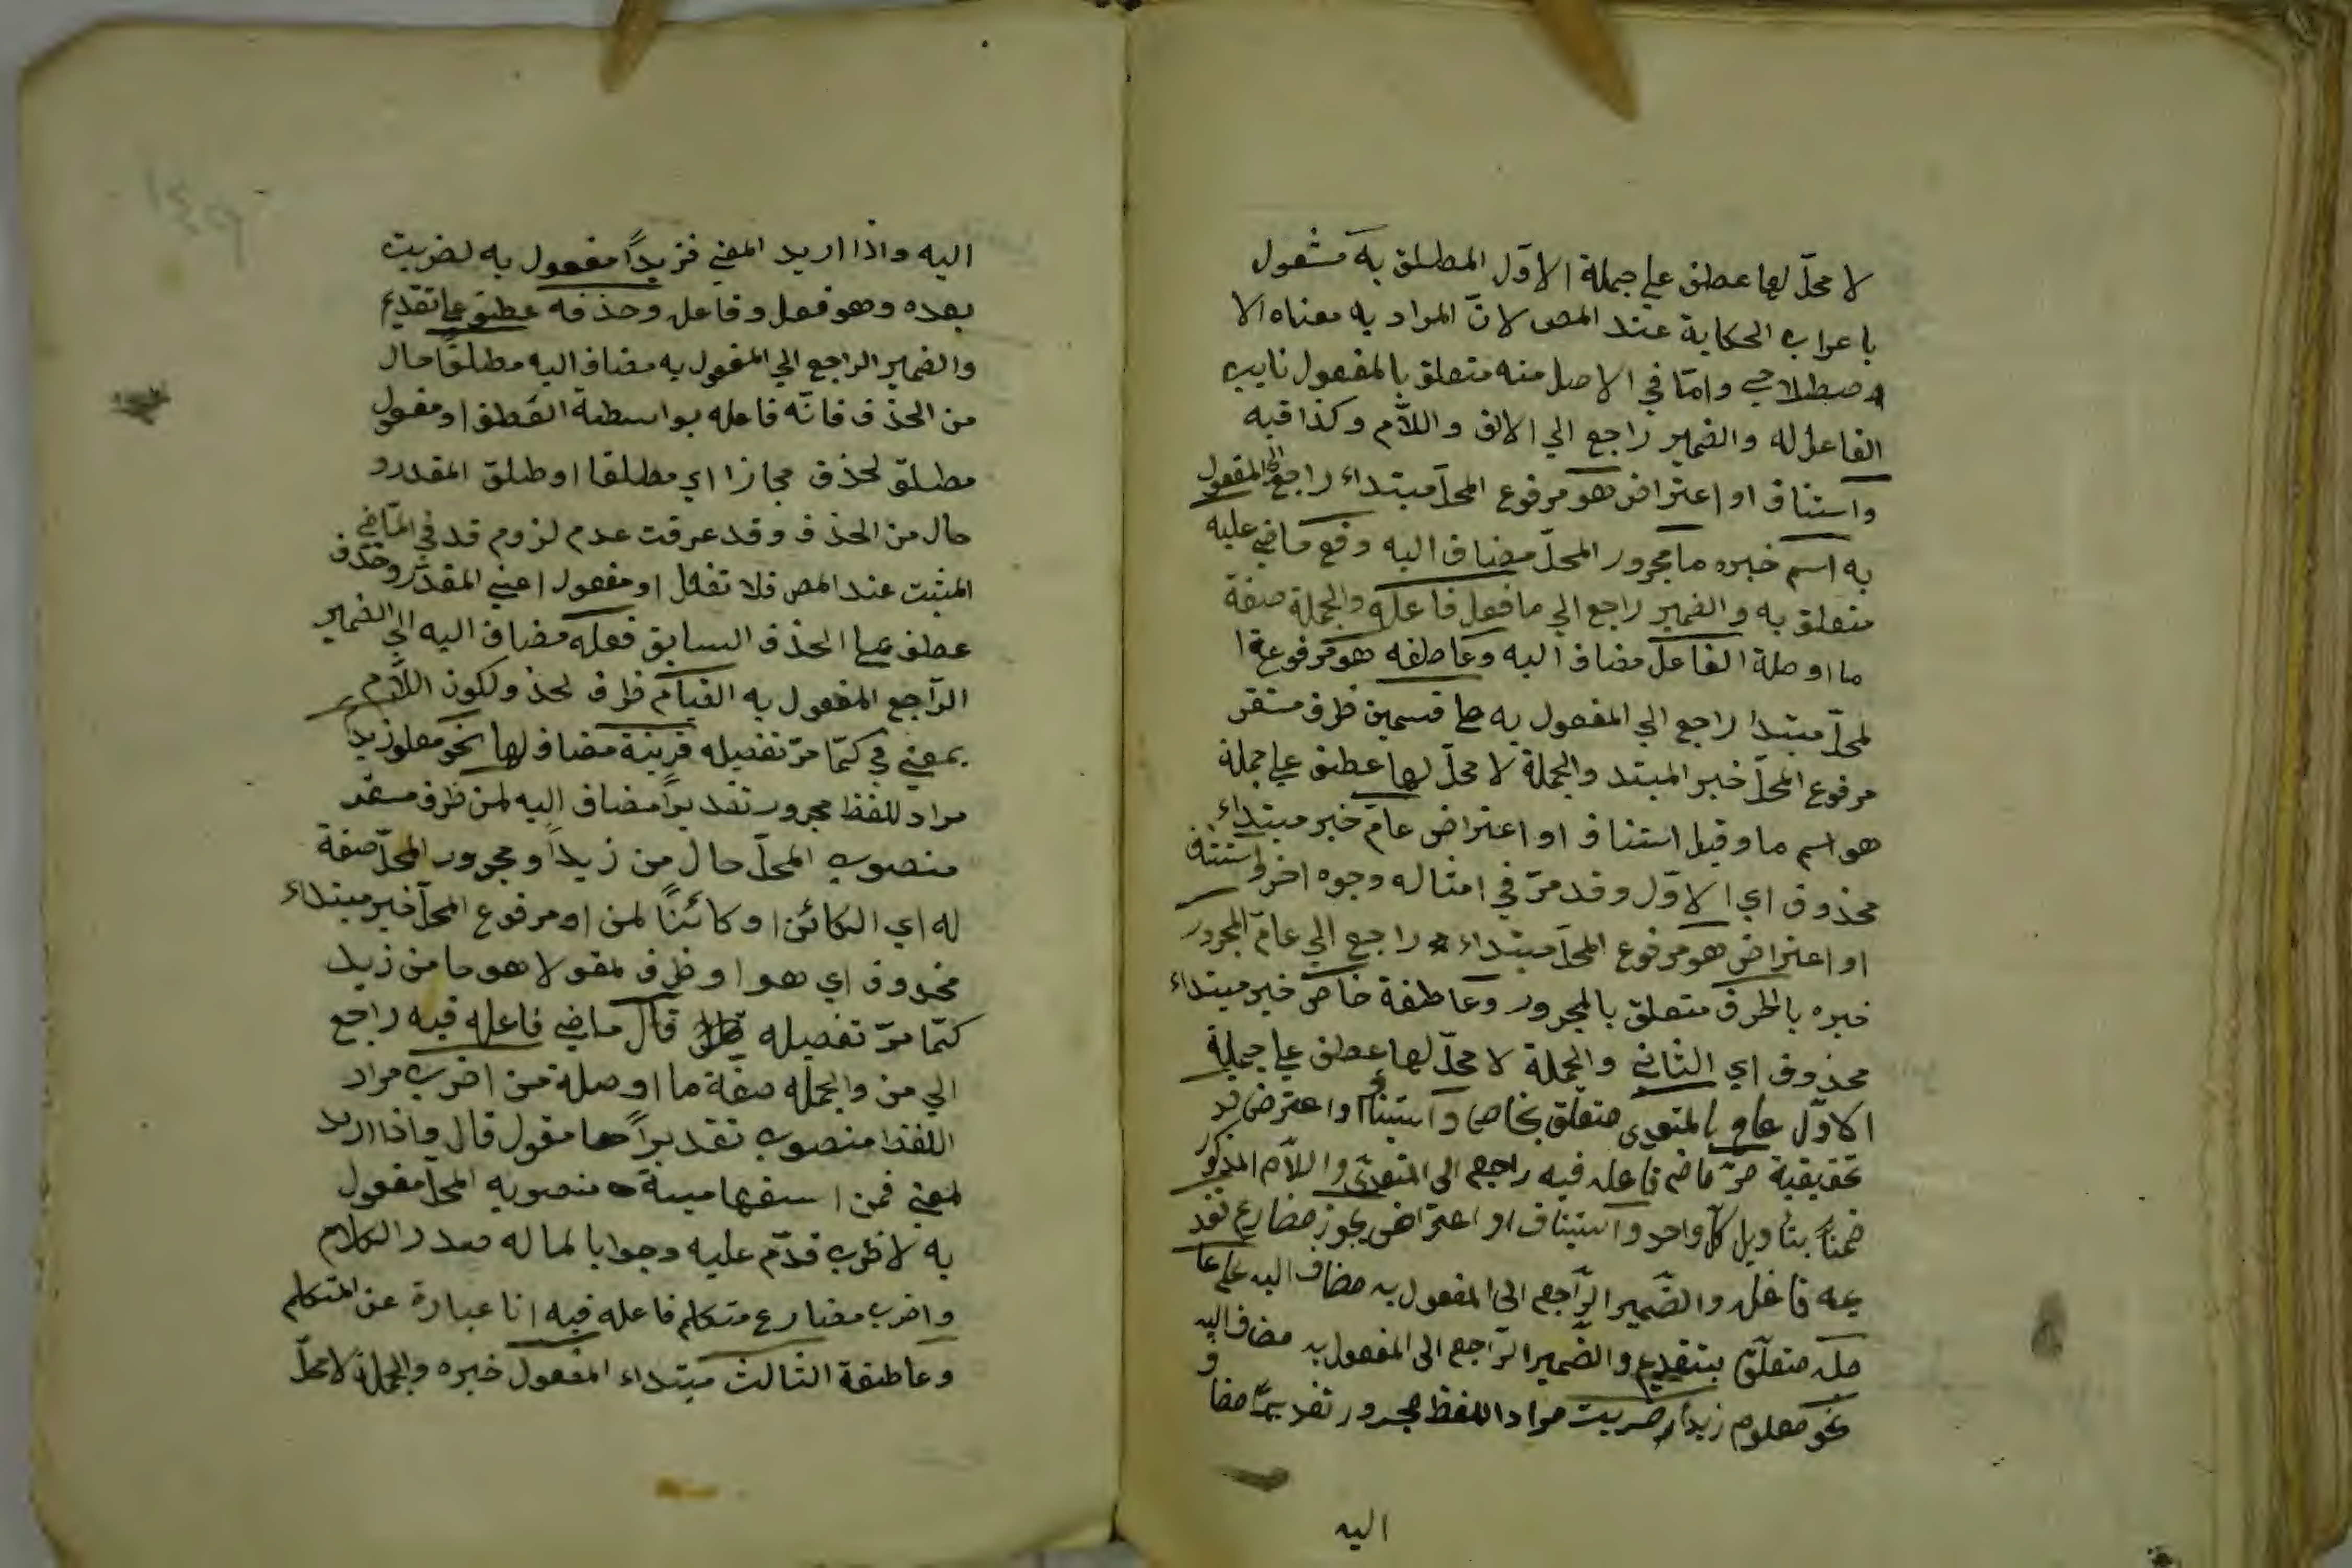 لا محلّ لها عطف علي جملة الاوّل المطلق به مشغول
باعراب الحكاية عند المص لانّ المراد به معناه الا
صطلاحي وامّا في الاصل منه متعلق بالمفعول نايب
الفاعل له والضمير راجع الي الالف واللاّم وكذا فيه
وآستناف او اعتراض هو مرفوع المحلّ مبتداء راجع الي المفعول
به اسم خبره ما مجرور المحلّ مضاف اليه وقع ماضي عليه
متعلق به والضمير راجع الي ما فعل فاعله والجملة صفة
ما او صلة الفاعل مضاف اليه وعاطفه هو مرفوعة ا
لمحلّ مبتدا راجع الي المفعول به علي قسمين ظرف مستقر
مرفوع المحلّ خبر المبتد والجملة لا محلّ لها عطف علي جملة
هو اسم ما وقيل استناف او اعتراض عامّ خبر مبتداء
محذوف اي الاوّل وقد مرّ في امثاله وجوه اخر واستناف
او اعتراض هو مرفوع المحلّ مبتداء راجع الي عامّ المجرور
خبره بالظرف متعلق بالمجرور وعاطفة خاصّ خبر مبتداء
محذوف اي الثاني والجملة لا محلّ لها عطف علي جملة
الاوّل عام بالمتعدى متعلق بخاص وآستيناف او اعترض قد
تحقيقية مرّ ماض فاعله فيه راجع الى المتعدّى واللاّم المذكور
ضمناً بتأويل كلّ واحد وآستيناف او اعتراض يجوز مضارع تقد
يمه فاعله والضّمير الرّاجع الى المفعول به مضاف اليه على عا
مله متعلّق بتقديم والضّمير الرّاجع الى المفعول به مضاف اليه و
نحو معلوم زيداً ضربت مراد اللفظ مجرور تقديراً مضا
اليه
اليه واذا اريد المعني فزيداً مفعول به لضربت
بعده وهو فعل وفاعل وحذفه عطف علي تقديم
والضمير الراجع الي المفعول به مضاف اليه مطلقاً حال
من الحذف فانّه فاعله بواسطة العطف او مفعول
مطلق لحذف مجازا اي مطلقا او طلق المقدر و
حال من الحذف وقد عرفت عدم لزوم قد في المّاضي
المثبت عند المص فلا تغفل او مفعول اعني المقدّر وحذف
عطف علي الحذف السابق فعله مضاف اليه الي الضمير
الرّاجع المفعول به القيام ظرف لحذ ولكون اللاّم
بمعني في كمّا مرّ تفصيله قرينة مضاف لها نحو معلو زيداً
مراد للفظ مجرور تقديراً مضاف اليه لمن ظرف مستقّر
منصوب المحلّ حال من زيداً ومجرور المحلّ صفة
له اي الكائن او كائناً لمن او مرفوع المحلّ خبر مبتداء
محذوف اي هو او ظرف لمقولا هو ما من زيد
كمّا مرّ تفصيله قال ماضي فاعله فيه راجع
الي من والجمله صفة ما او صلة من اضرب مراد
اللفظ منصوب تقديراً مقول قال واذا اريد
لمعني فمن استفهامية منصوبه المحلّ مفعول
به لاضرب قدّم عليه وجوبا لما له صدر الكلام
واضرب مضارع متكلم فاعله فيه انا عبارة عن المتكلم
وعاطفة الثالث مبتداء المفعول خبره والجملة لا محلّ